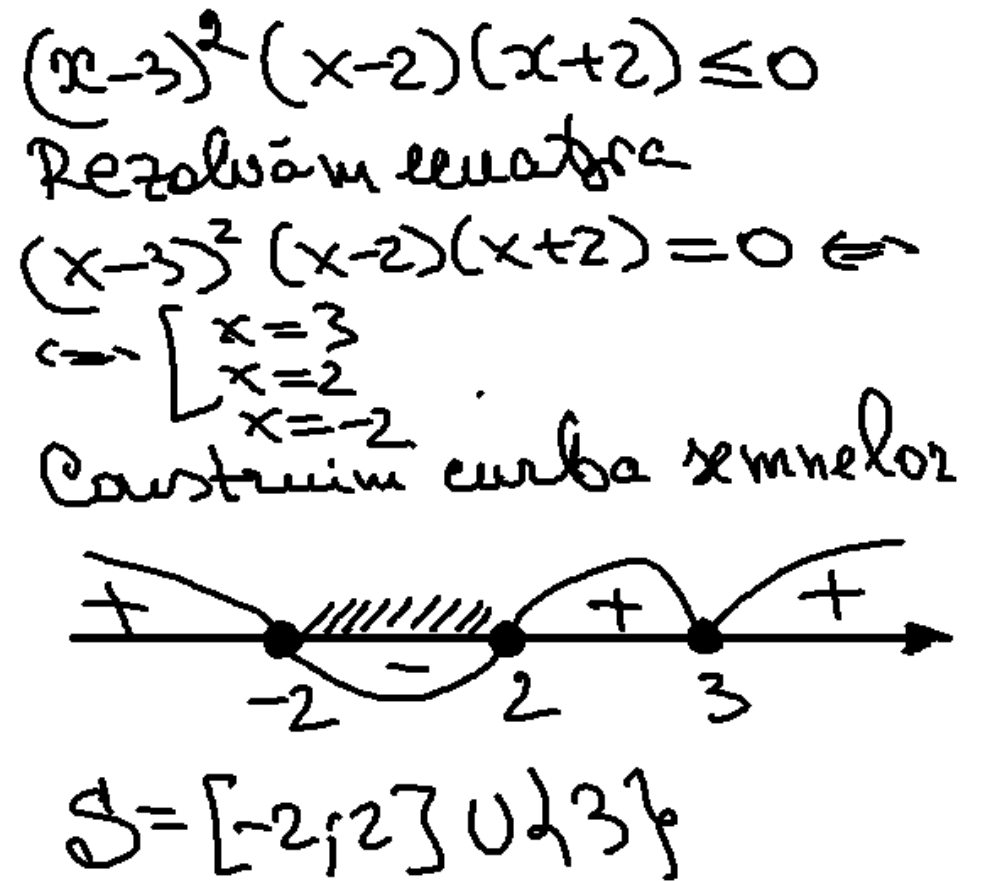 (x-3)² (x-2)(x+2) ≤ 0
Rezolvăm ecuația
(x-3)² (x-2)(x+2) = 0 ⇔
⇔ [ x=3
x=2
x=-2
Construim curba semnelor
+ - + +
-2 2 3
S = [-2; 2] ∪ {3}